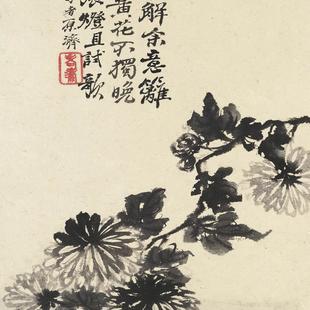 解余意籬
黃花不獨晚
燈且試歌
原濟